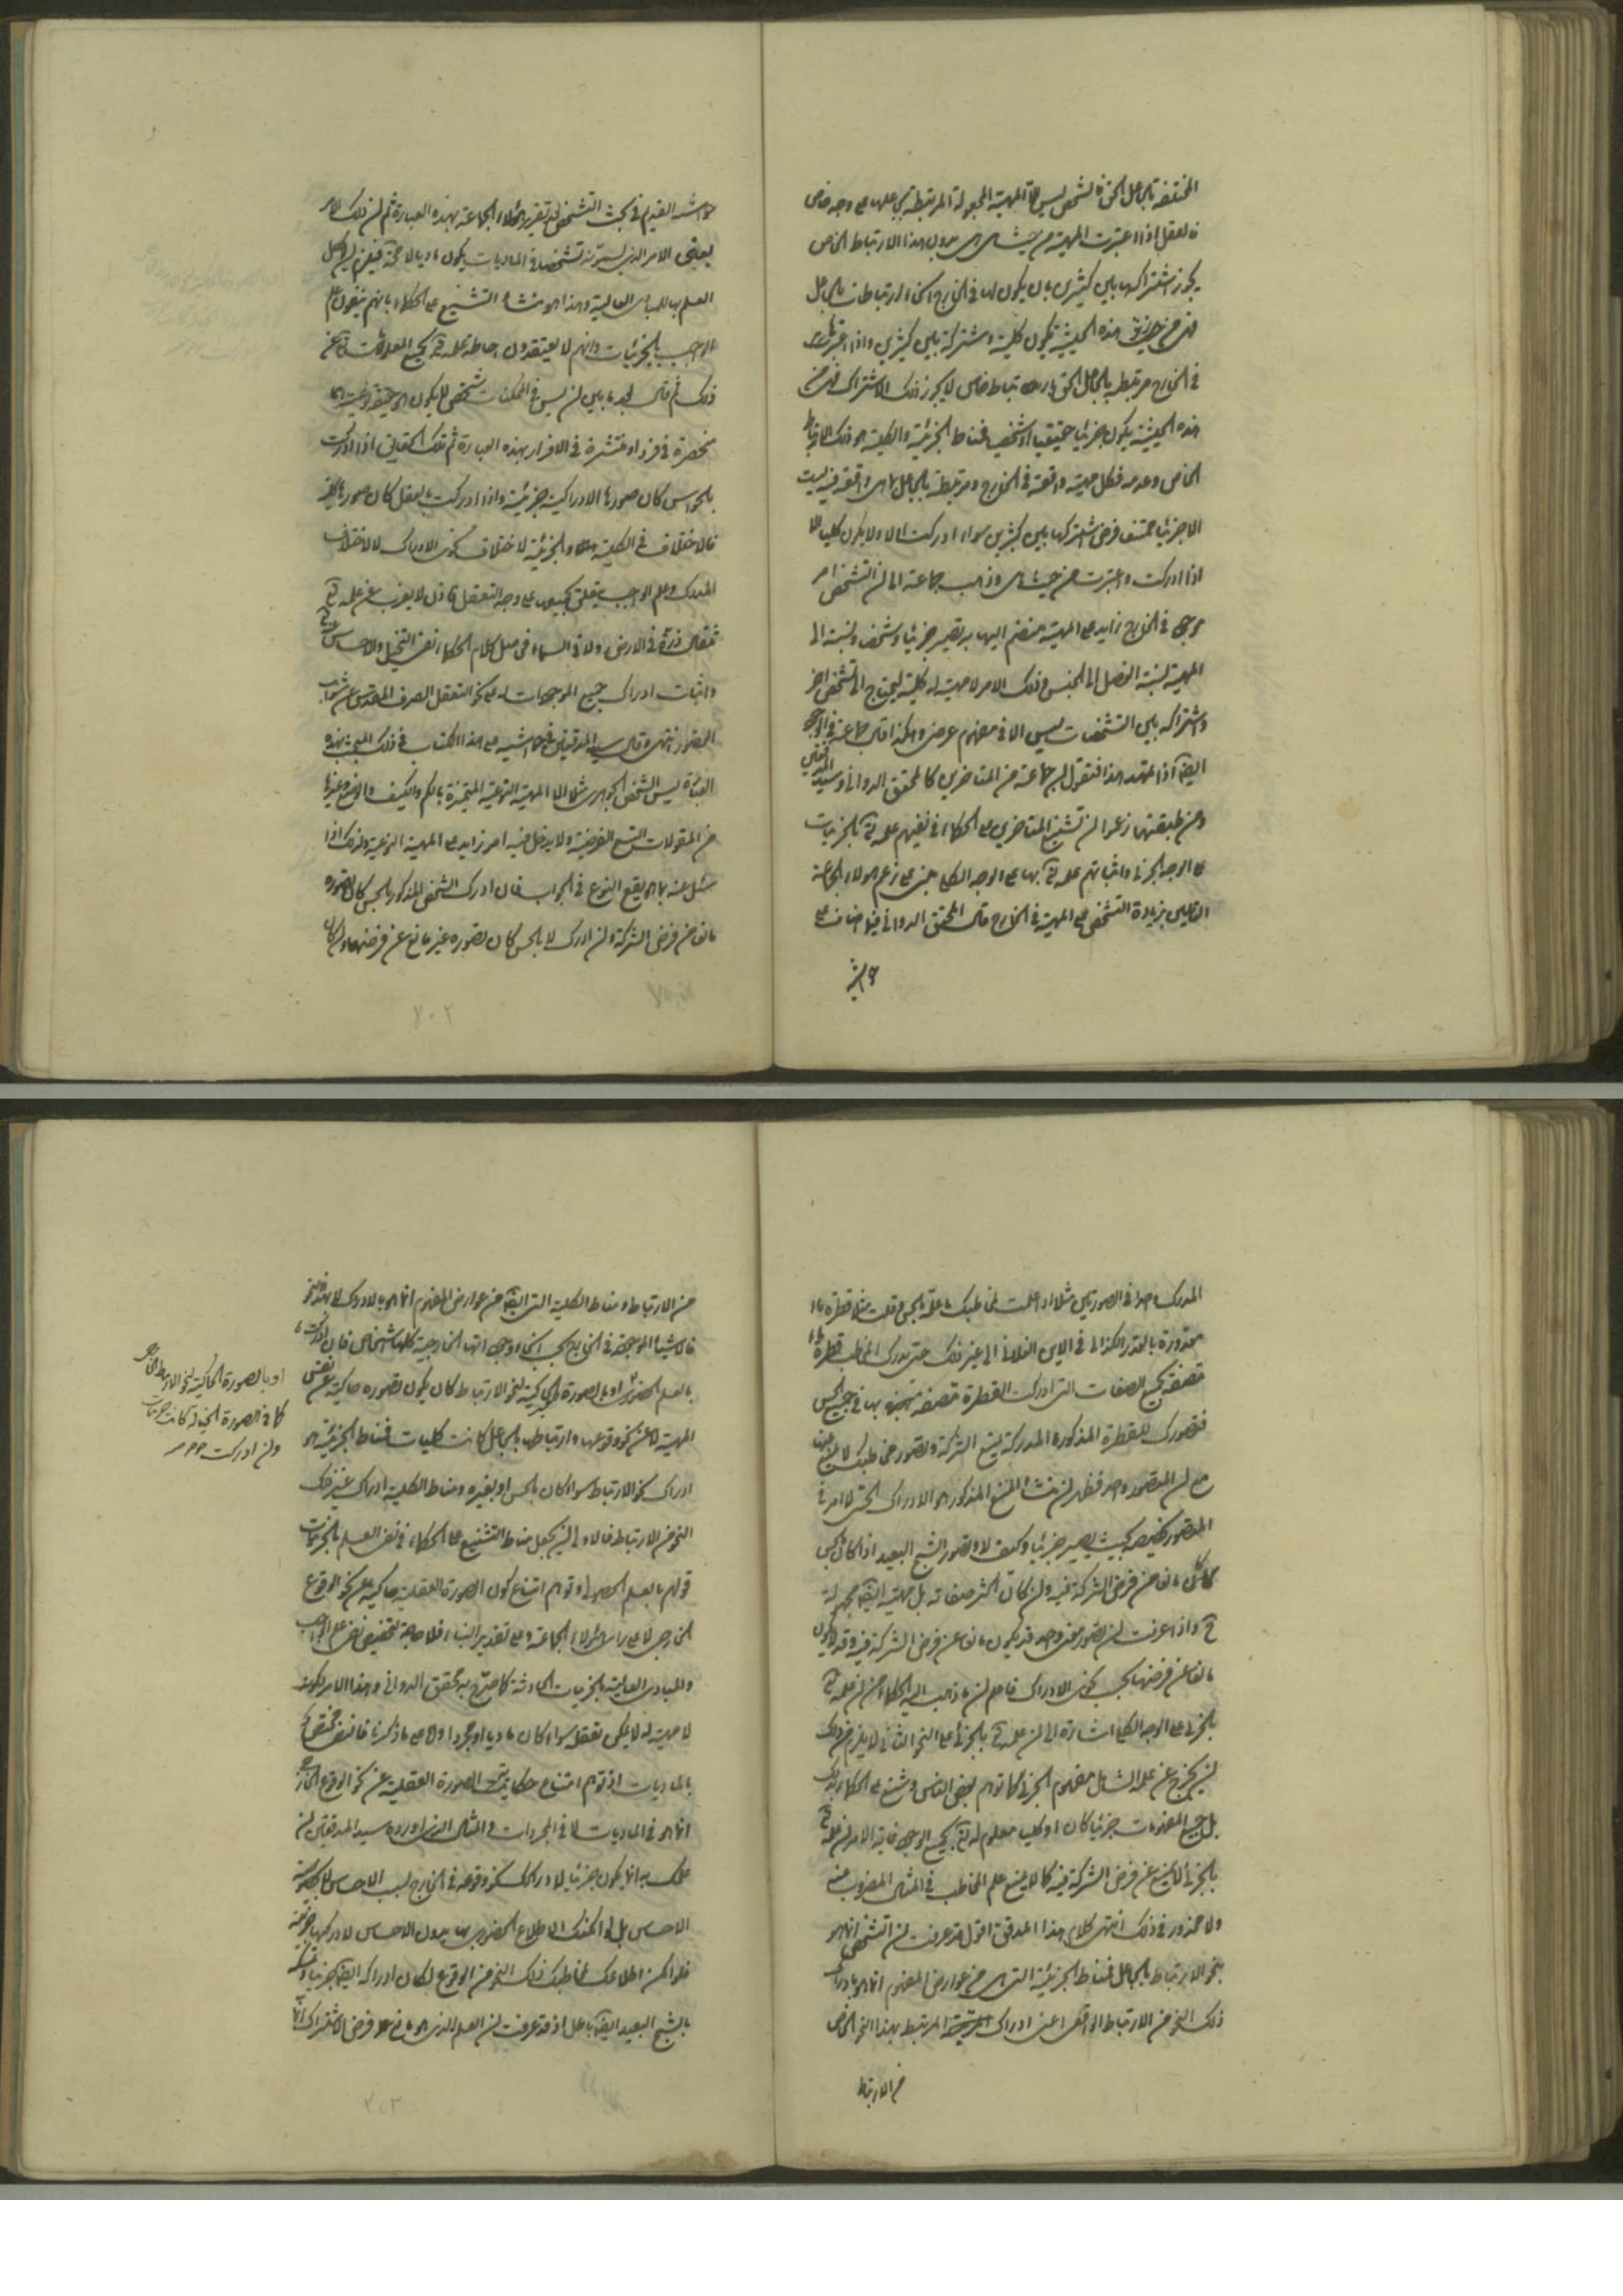 المختصة بالجاعل الحق فالشخص ليس الا المهية المجعولة المرتبطة بجاعلها على وجه خاص
فالعقل اذا اعتبرت المهية من حيث هى هى بدون هذا الارتباط الخاص
يجوز اشتراكها بين كثيرين بان يكون لها فى الخارج انحاء ارتباطات بالجاعل
فهى من هذه الحيثية يكون كلية ومشتركة بين كثيرين واذا اعتبرها
فى الخارج مرتبطة بالجاعل الحق بارتباط خاص لا يجوز ذلك الاشتراك فهى من
هذه الحيثية يكون جزئيا حقيقيا وشخصا فمناط الجزئية والكلية هو ذلك الارتباط
الخاص وعدمه فكل مهية واقعة فى الخارج ومرتبطة بالجاعل هى واقعة فيه ليست
الا جزئيا ممتنع فرض اشتراكها بين كثيرين سواء ادركت ام لا ولا يكون كليا الا
اذا ادركت واعتبرت من حيث هى وذهب جماعة الى ان التشخص امر
موجود فى الخارج زايد على المهية منضم اليها به تصير جزئيا وشخصا ونسبته الى
المهية نسبة الفصل الى الجنس وذلك الامر لا مهية له كلية ليحتاج الى تشخص اخر
واشتراكه بين التشخصات ليس الا فى مفهوم عرضى وهكذا قال جماعة فى الوجود
ايضا اذا تمهد هذا فنقول ان جماعة من المتاخرين كالمحقق الدوانى وسيد المدققين
ومن طبقتهما زعموا ان تشنيع المتاخرين على الحكماء فى نفيهم علمه تعالى بالجزئيات
على الوجه الجزئى واثباتهم علمه تعالى بها على الوجه الكلى مبنى على زعم هولاء الجماعة
القايلين بزيادة التشخص على المهية فى الخارج قال المحقق الدوانى فيما اضاف على
حواشيه
حواشيه القديم فى بحث التشخص بعد تقرير هؤلاء الجماعة بهذه العبارة ثم ان ذلك الامر
يعنى الامر الذى يستند تشخص فى الماديات يكون ماديا لا محالة فيلزم ان لا يحصل
العلم بها للمبادى العالية وهذا هو منشأ التشنيع على الحكماء بانهم ينفون علم
الواجب بالجزئيات وانهم لا يعتقدون احاطة علمه تعالى بجميع المعلومات تعالى عن
ذلك ثم قال بعد ما بين ان ليس فى الممكنات شخص لا يكون له حقيقة نوعية اما
منحصرة فى فرد او منتشرة فى الافراد بهذه العبارة ثم تلك الحقايق اذا ادركت
بالحواس كان صورتها الادراكية جزئية واذا ادركت بالعقل كان صورتها كلية
فالاختلاف فى الكلية والجزئية لاختلاف نحوى الادراك لا لاختلاف
المدرك وعلم الواجب يتعلق بجميعها على وجه التعقل فاذن لا يعزب عن علمه تعالى
مثقال ذرة فى الارض ولا فى السماء فحاصل كلام الحكماء نفى التخيل والاحساس عنه تعالى
واثبات ادراك جميع الموجودات له على نحو التعقل الصرف المقدس عن شوائب
القصور انتهى وقال سيد المدققين فى حواشيه على هذا الكتاب فى ذلك المبحث بهذه
العبارة ليس الشخص الجوهرى مثلا الا المهية النوعية المتحيزة بالكم والكيف والوضع وغيرها
من المقولات التسع العرضية ولا يدخل فيه امر زايد على المهية النوعية ولذلك اذا
سئل عنه بما هو يقع النوع فى الجواب فان ادرك الشخص المذكور بالحس كان تصوره
مانعا من فرض الشركة وان ادرك لا بالحس كان تصوره غير مانع عن فرضها وان كان
٢٠٢
المدرك واحدا فى الصورتين مثلا اذا علمت مخاطبك ما علمته بالحس وقلت مثلا قطرة ماء
مقدورة بالقدر الكذائى فى الاين الفلانى الى غير ذلك حتى يدرك المخاطب قطرة ماء
متصفة بجميع الصفات التى ادركت القطرة متصفة بها فى جميع الحس
فتصورك للقطرة المذكورة المدركة يمنع الشركة وتصور مخاطبك لا يمنع منها
مع ان المتصور واحد فظهر ان منشأ المنع المذكور هو الادراك الحسى لا امر فى
المتصور يخصه بحيث يصير جزئيا وكيف لا وتصور الشبح البعيد اذا كان بحس
كان مانعا من فرض الشركة فيه وان كان اكثر صفاته بل مهيته ايضا مجهولة
واذا عرفت ان تصور معنى واحد قد يكون مانعا عن فرض الشركة فيه وقد لا يكون
مانعا عن فرضها بحسب نحوى الادراك فاعلم ان ما ذهب اليه الحكماء من ان علمه تعالى
بالجزئى على الوجه الكلى اشارة الى ان علمه تعالى بالجزئى على النحو الثانى لا يلزم من ذلك
ان يخرج عن علمه الشامل مفهوم الجزئى كما توهم بعض الناس وشنع على الحكماء بذلك
بل جميع المفهومات جزئيا كان او كليا معلوم له تعالى بجميع الوجوه غاية الامر ان علمه تعالى
بالجزئى لا يمنع عن فرض الشركة فيه كما لا يمنع علم المخاطب فى المثال المضروب منه
ولا محذور فى ذلك انتهى كلام هذا المدقق اقول قد عرفت ان التشخص انما هو
بنحو الارتباط بالجاعل فمناط الجزئية التى هى من عوارض المفهوم انما هو بادراك
ذلك النحو من الارتباط الواقعى اعنى ادراك المرتبط بهذا النحو الخاص
من الارتباط
من الارتباط ومناط الكلية التى ايضا من عوارض المفهوم انما هو بالادراك لا بهذا النحو
فالاشياء الموجودة فى الخارج بحسب انحاء وجوداتها الخارجية كلها اشخاص فان ادركت
بالعلم الحضورى او بالصورة الحاكية لنحو الارتباط كان يكون تصوره حاكية عن نفس
المهية لا عن نحو وقوعها وارتباطها بالجاعل كانت كليات فمناط الجزئية هو
ادراك نحو الارتباط سواء كان بالحس او بغيره ومناط الكلية ادراك غير ذلك
النحو من الارتباط فالاولى ان يجعل مناط التشنيع على الحكماء فى نفى العلم بالجزئيات
قولهم بالعلم الحصولى وتوهم امتناع كون الصورة العقلية حاكية عن نحو الوقوع
الخارجى لا على راى هؤلاء الجماعة وعلى تقدير البناء فلا حاجة لتخصيص نفى علم الواجب
والمبادى العالية بالجزئيات الحادثة كما صرح به المحقق الدوانى وهذا الامر لكونه
لا مهية له لا يمكن تعقله سواء كان ماديا او مجردا واما على ما ذكرنا فالنفى مختص
بالماديات اذ توهم امتناع حكاية الصورة العقلية عن نحو الوقوع الخارجى
انما هو فى الماديات لا فى المجردات والمثال الذى اورده سيد المدققين ان
علمك به انما يكون جزئيا لادراكك نحو وقوعه فى الخارج بسبب الاحساس لا بخصوصية
الاحساس بل لو امكنك الاطلاع الحضورى بها بدون الاحساس لادركتها جزئية
فلو امكن اطلاعك مخاطبك ذلك النحو من الوقوع لكان ادراكه ايضا جزئيا وتمسكه
بالشبح البعيد ايضا باطل اذ قد عرفت ان العلم الذى هو مانع عن فرض الاشتراك انما
او بالصورة الحاكية لنحو الارتباط الخارجى
كما فى الصورة الخيالية كانت جزئيات
وان ادركت
٢٠٣